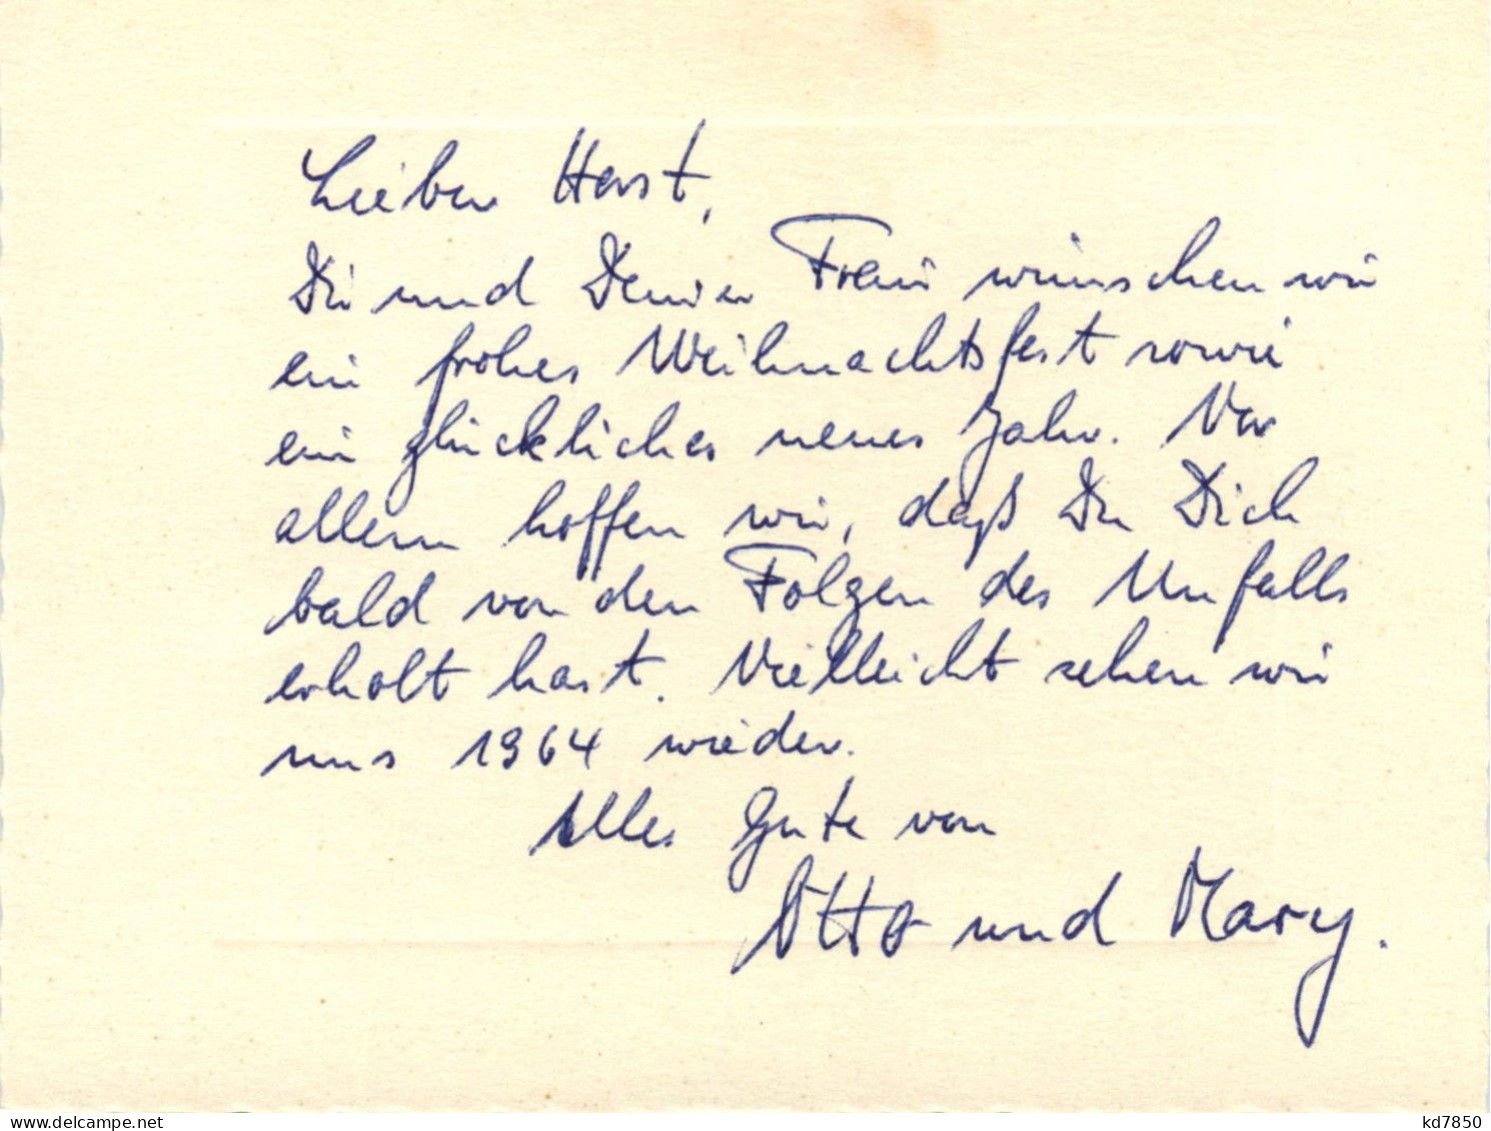 Lieber Horst,
Dir und Deiner Frau wünschen wir
ein frohes Weihnachtsfest sowie
ein glückliches neues Jahr. Vor
allem hoffen wir, daß Du Dich
bald von den Folgen des Unfalls
erholt hast. Vielleicht sehen wir
uns 1964 wieder.
Alles Gute von
Otto und Mary.
the-saleroom.com
kd7850